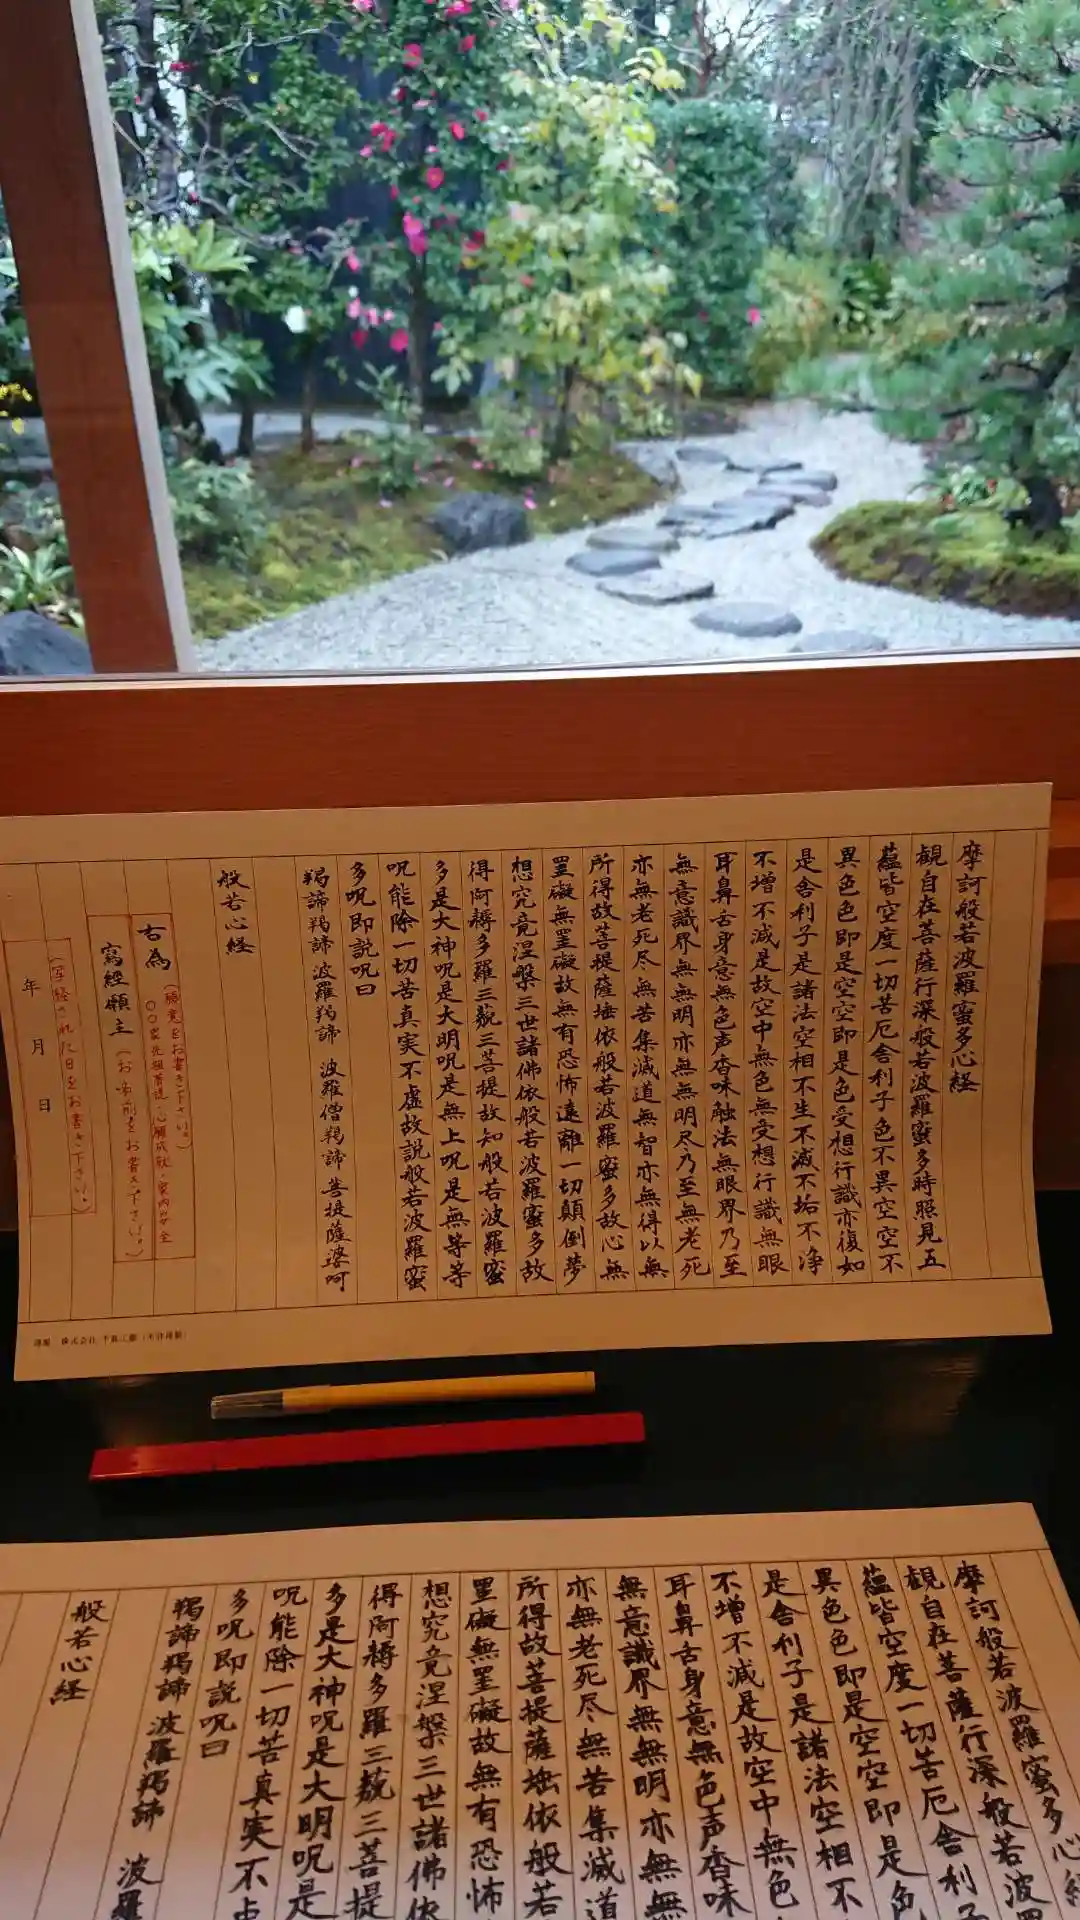 摩訶般若波羅蜜多心経
観自在菩薩行深般若波羅蜜多時照見五
蘊皆空度一切苦厄舎利子色不異空空不
異色色即是空空即是色受想行識亦復如
是舎利子是諸法空相不生不滅不垢不浄
不増不減是故空中無色無受想行識無眼
耳鼻舌身意無色声香味触法無眼界乃至
無意識界無無明亦無無明尽乃至無老死
亦無老死尽無苦集滅道無智亦無得以無
所得故菩提薩埵依般若波羅蜜多故心無
罣礙無罣礙故無有恐怖遠離一切顛倒夢
想究竟涅槃三世諸佛依般若波羅蜜多故
得阿耨多羅三藐三菩提故知般若波羅蜜
多是大神呪是大明呪是無上呪是無等等
呪能除一切苦真実不虚故説般若波羅蜜
多呪即説呪曰
羯諦羯諦 波羅羯諦 波羅僧羯諦 菩提薩婆呵
般若心経
(願意をお書き下さい。)
〇〇家先祖菩提・心願成就・家内安全
右為
寫經願主(お名前をお書き下さい。)
(写経された日をお書き下さい。)
年 月 日
摩訶般若波羅蜜多心経
観自在菩薩行深般若波
蘊皆空度一切苦厄舎利子
異色色即是空空即是色
是舎利子是諸法空相不
不増不減是故空中無色
耳鼻舌身意無色声香味
無意識界無無明亦無無
亦無老死尽無苦集滅道
所得故菩提薩埵依般若
罣礙無罣礙故無有恐怖
想究竟涅槃三世諸佛依
得阿耨多羅三藐三菩提
多是大神呪是大明呪是
呪能除一切苦真実不
多呪即説呪曰
羯諦羯諦 波羅羯諦 波羅
般若心経